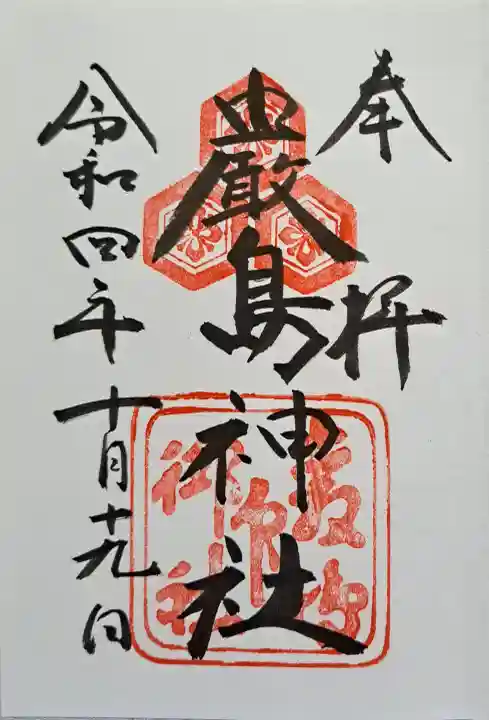 奉拝
嚴島神社
令和四年十月十九日